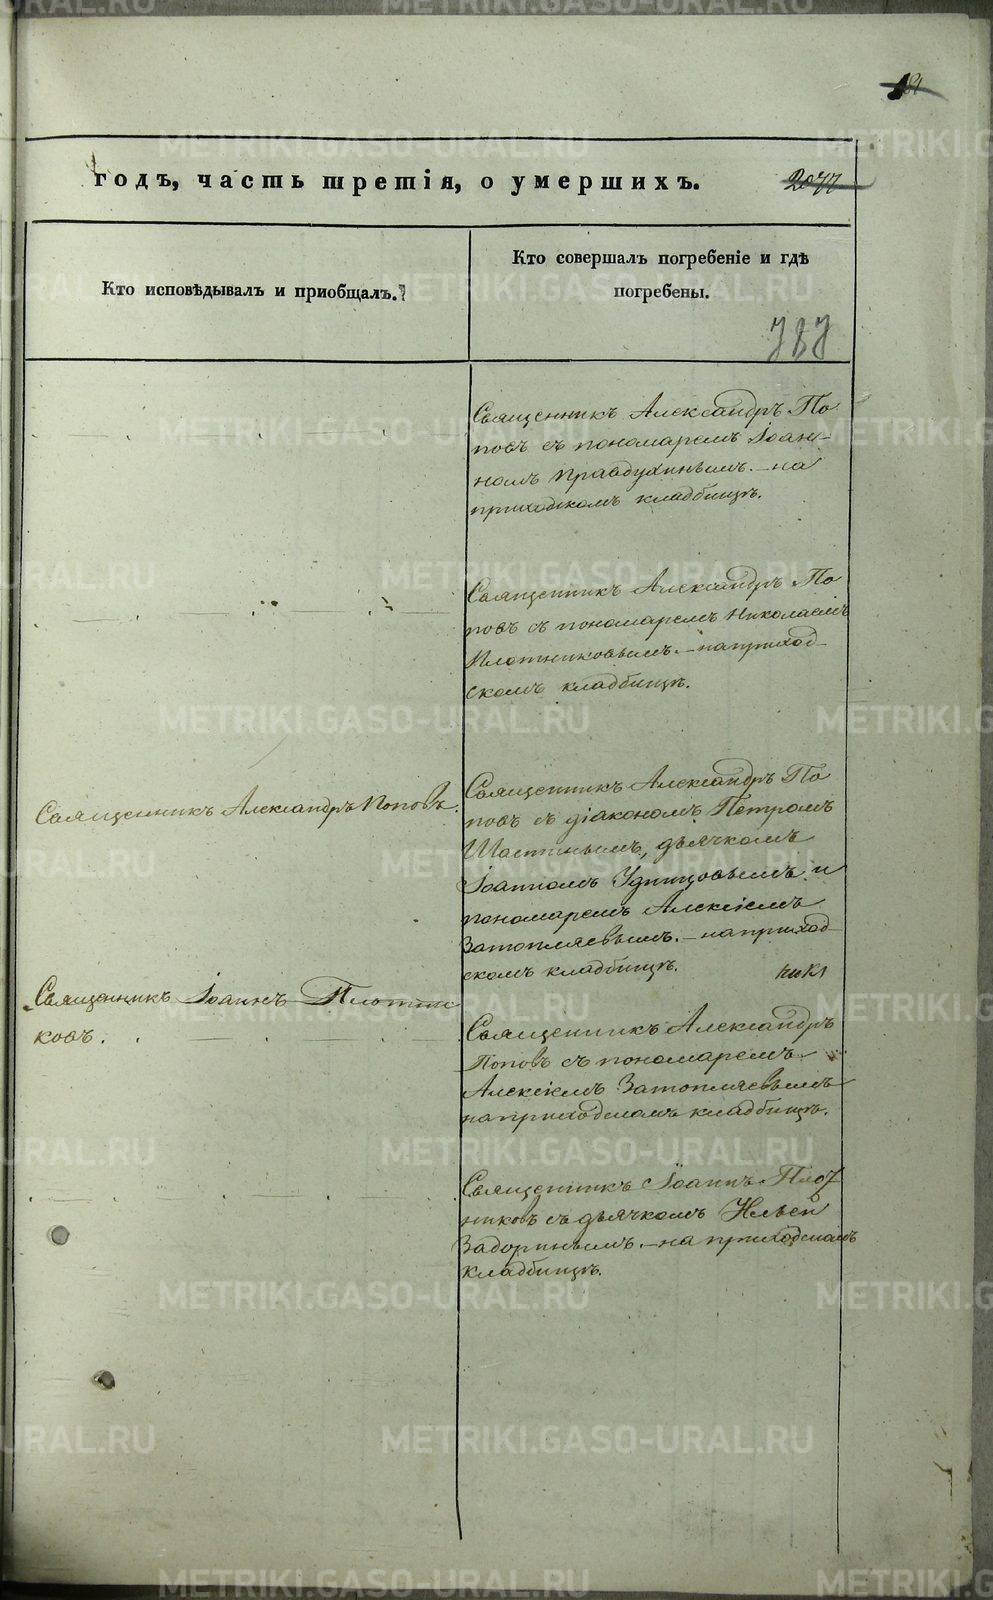 годъ, часть третія, о умершихъ.
2077
Кто исповѣдывалъ и пріобщалъ.
Кто совершалъ погребеніе и гдѣ
погребены.
787
Священникъ Александръ По
повъ съ пономаремъ Іоан-
номъ Правдухинымъ.-на
приходскомъ кладбищѣ.
Священникъ Александръ По
повъ съ пономаремъ Николаемъ
Плотниковымъ.-на приход-
скомъ кладбищѣ.
Священникъ Александръ Поповъ.
Священникъ Александръ По
повъ съ діакономъ Петромъ
дьячкомъ
Іоанномъ Удинцовымъ и
пономаремъ Алексіемъ
Затопляевымъ.-на приход-
скомъ кладбищѣ.
Священникъ Іоаннъ Плотни
ковъ.
Священникъ Александръ
Поповъ съ пономаремъ
Алексіемъ Затопляевымъ
на приходскомъ кладбищѣ.
Священникъ Іоаннъ Плот
никовъ съ дьячкомъ Ильей
Задоринымъ.-на приходскомъ
кладбищѣ.
METRIKI.GASO-URAL.RU